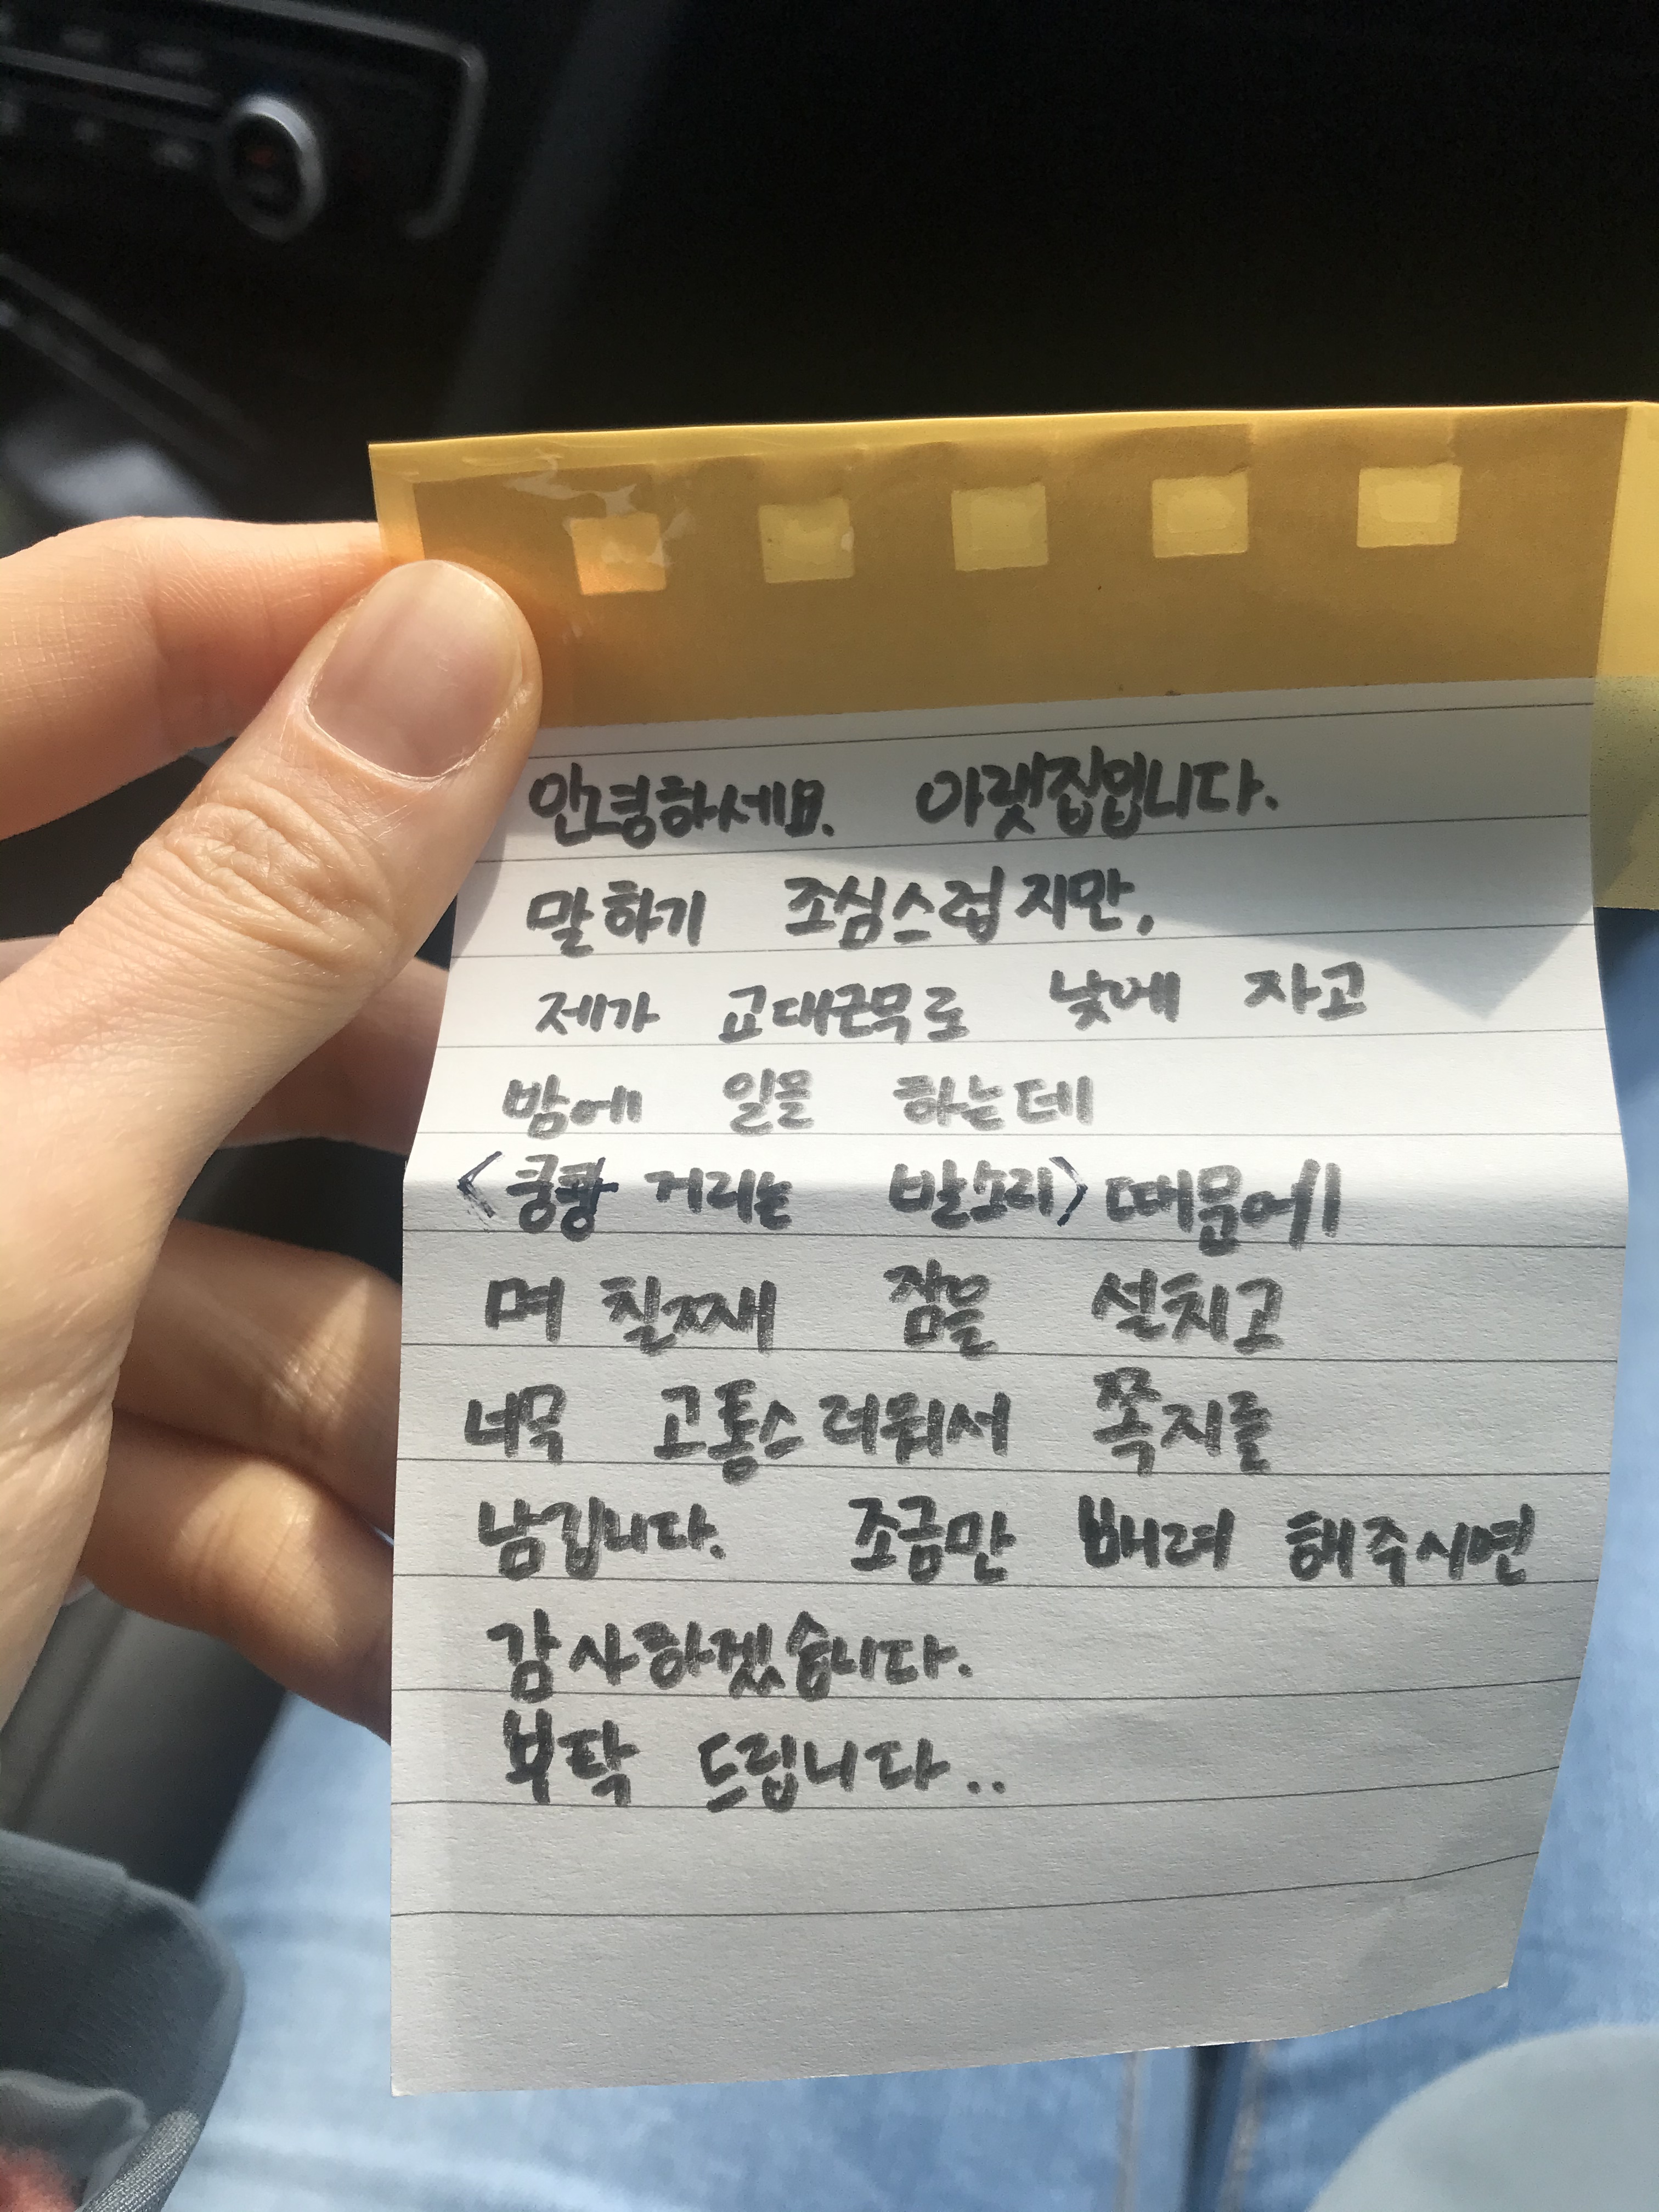 안녕하세요. 아랫집입니다.
말하기 조심스럽지만,
제가 교대근무로 낮에 자고
밤에 일을 하는데
<쿵쾅 거리는 발소리> 때문에
며칠째 잠을 설치고
너무 고통스러워서 쪽지를
남깁니다. 조금만 배려 해주시면
감사하겠습니다.
부탁 드립니다..